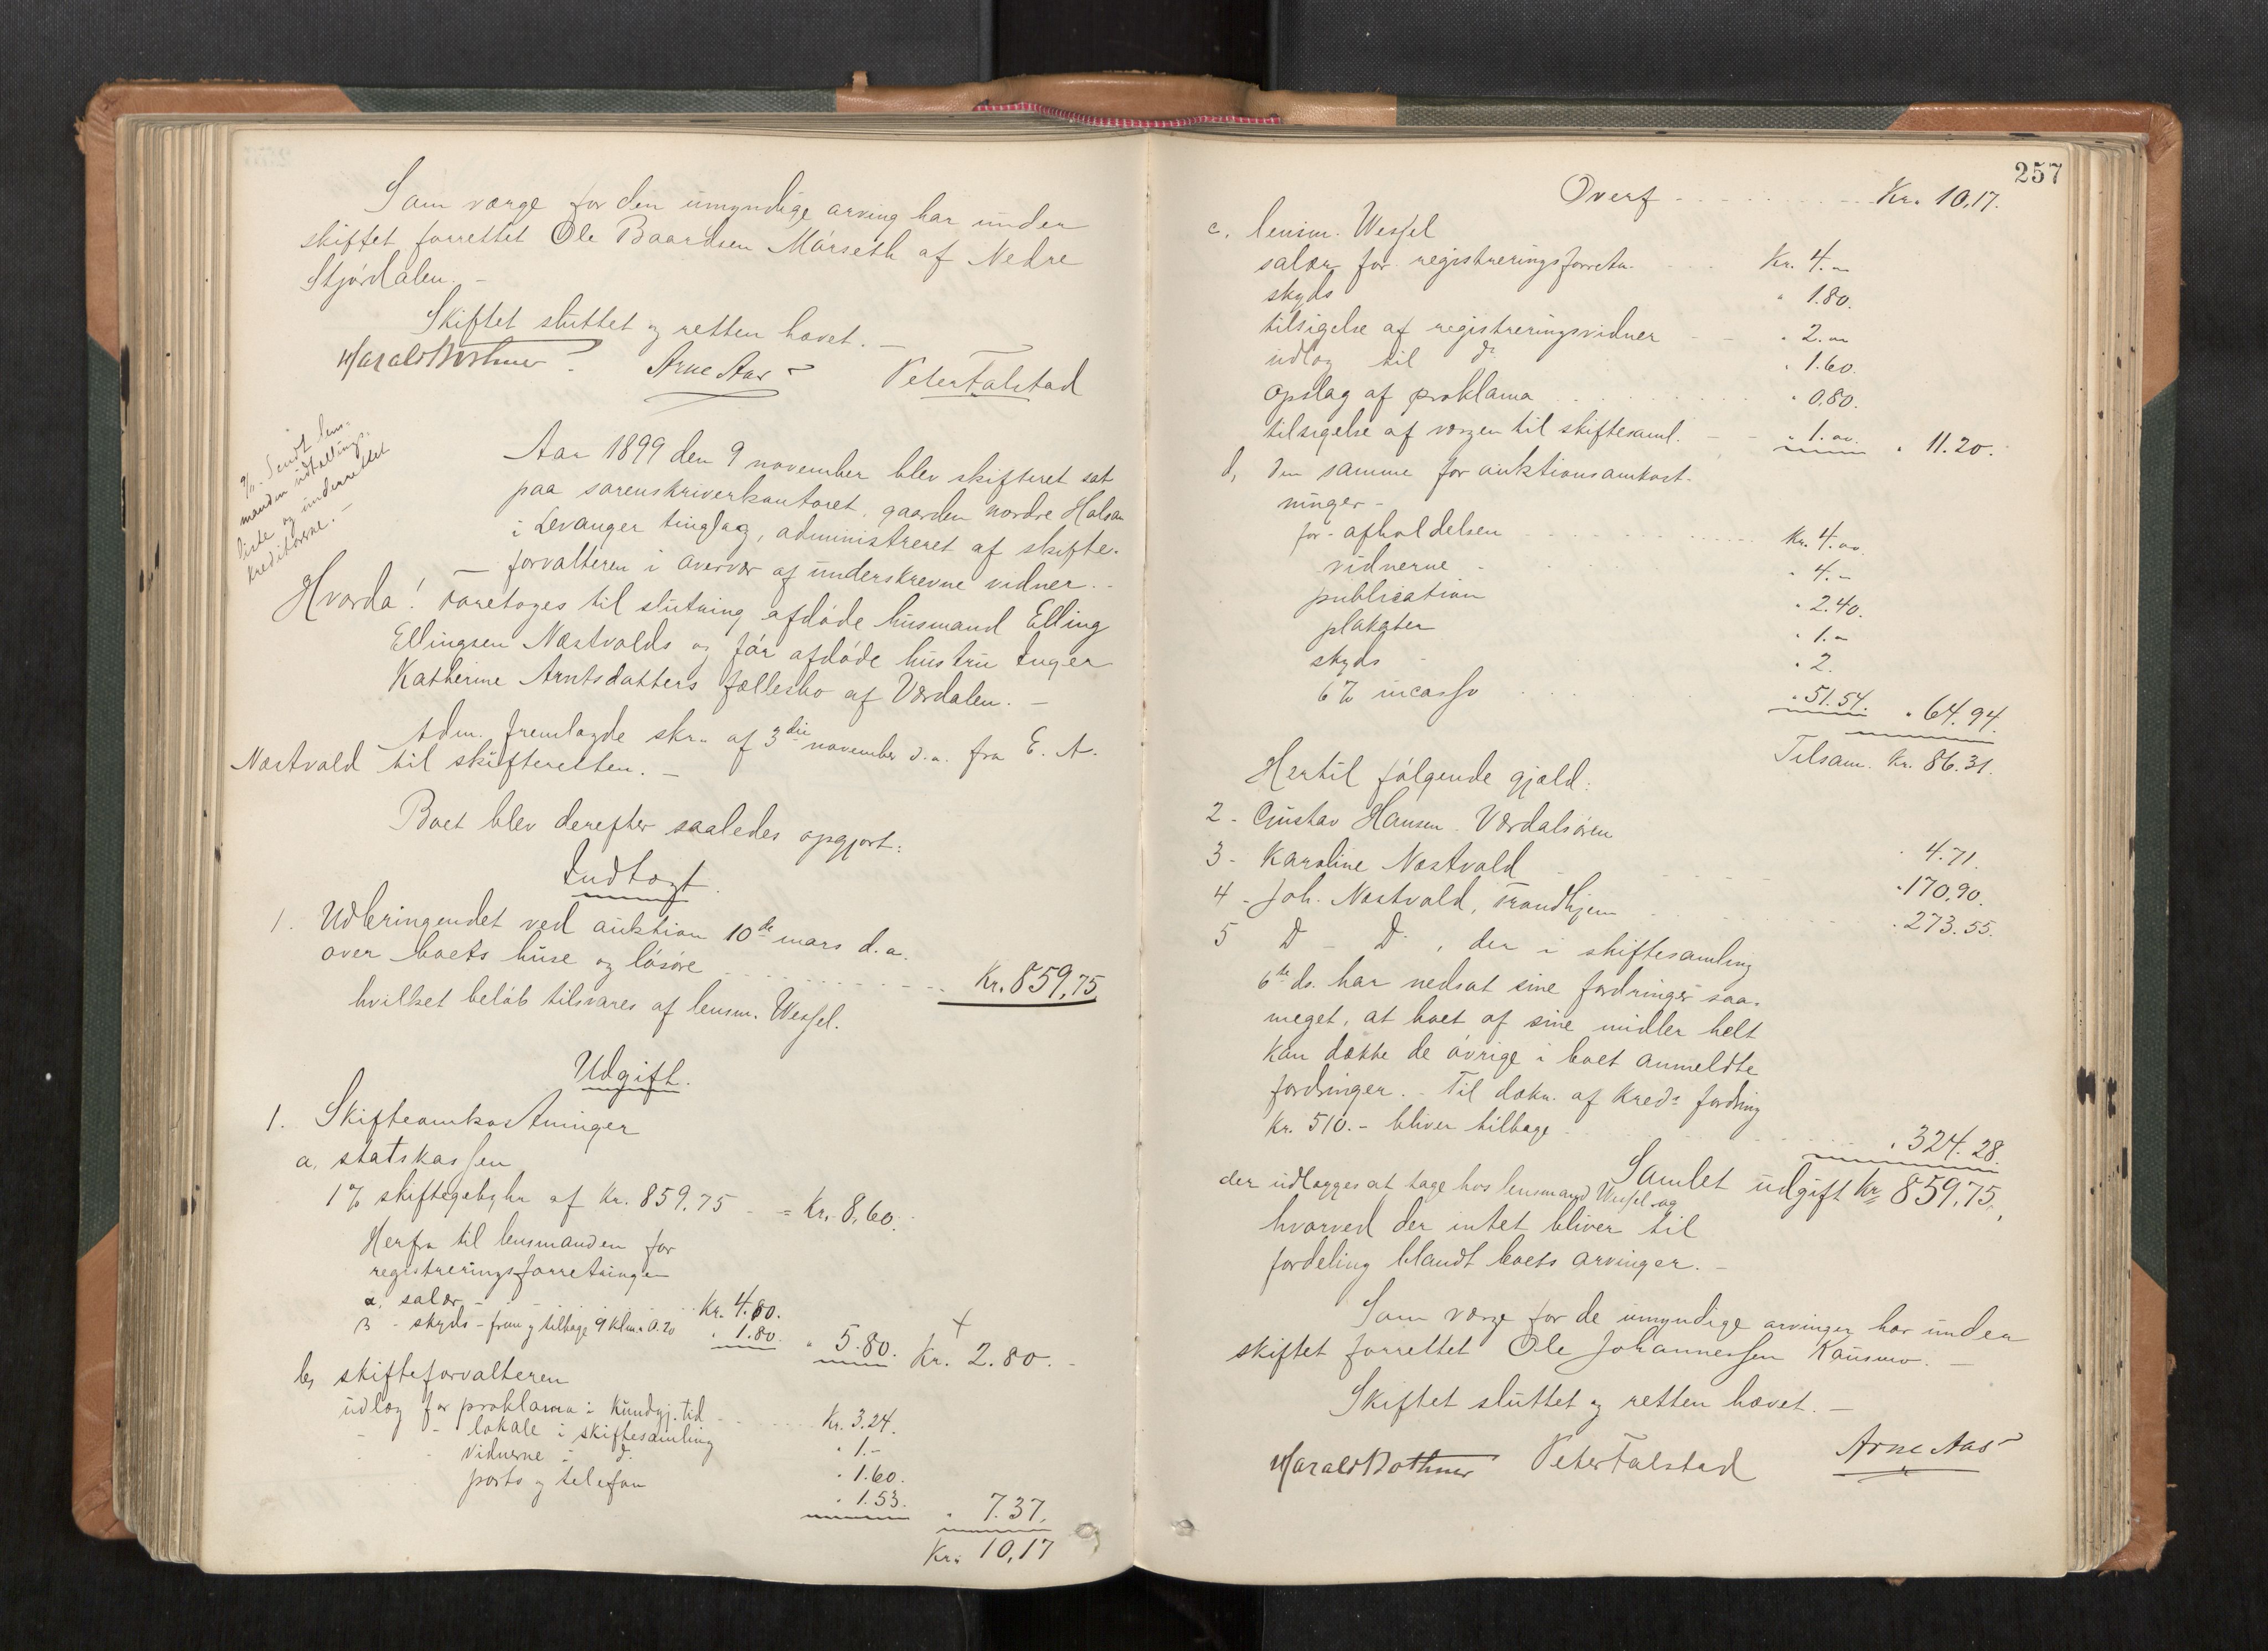 Som værge for den umyndige arving har under
skiftet forrettet Ole Baardsen Mørseth af Nedre
Stjørdalen. –
Skiftet sluttet og retten hævet. –
Harald Bothner Arne Aas Peter Falstad
9/11. Sendt lens-
manden udtallings-
liste og underrettet
kreditorerne. –
Aar 1899 den 9 november blev skifteret sat
paa sorenskriverkontoret, gaarden nordre Halsan
i Levanger tinglag, administreret af skifte-
forvalteren i overvær af underskrevne vidner. –
Hvorda! Foretoges til slutning afdøde husmand Elling
Ellingsen Næstvolds og før afdøde hustru Inger
Katherine Arntsdatters fællesbo af Værdalen. –
Adm. fremlagde skr. af 3die november d.a. fra E. A.
Næstvold til skifteretten. –
Boet blev derefter saaledes opgjort:
Indtægt.
1. Udbringendet ved auktion 10de mars d.a.
over boets huse og løsøre Kr. 859,75
hvilket beløb tilsvares af lensm. Wessel.
Udgift.
1. Skifteomkostninger
a. statskassen
1 % skiftegebyhr af Kr. 859.75 - = Kr. 8,60.
Herfra til lensmanden for
registreringsforretningen
α. salær Kr. 4.00.
β - skyds - frem og tilbage 9 klm. a 0.20 " 1.80. " 5.80. Kr. 2.80. -
b, skifteforvalteren
udlæg for proklama i Kundgj. tid Kr. 3.24.
- - lokale i skiftesamling " 1.-
- - vidnerne i do. " 1.60.
porto og telefon " 1.53. " 7.37.
Kr. 10,17
257
Overf Kr. 10,17.
c. lensm. Wessel
salær for registreringsforretn. Kr. 4.-
skyds " 1.80.
tilsigelse af registreringsvidner " 2.00
udlæg til do " 1.60.
opslag af proklama " 0.80.
tilsigelse af værgen til skiftesaml. " 1.00. " 11.20.
d, den samme for auktionsomkost-
ninger -
for - afholdelsen Kr. 4.00.
vidnerne " 4.-
publication " 2.40.
plakater " 1.-
skyds " 2.
6 % incasso " 51.54. " 64.94.
Tilsam. Kr. 86.31.
Hertil følgende gjæld:
2 - Gustav Hansen. Værdalsøren " 4.71.
3 - Karoline Næstvold " 170,90.
4 - Joh. Næstvold, Trondhjem " 273.55.
5 Do - Do , der i skiftesamling
6te ds. har nedsat sine fordringer saa-
meget, at boet af sine midler helt
kan dække de øvrige i boet anmeldte
fordringer. - Til dækn. af Kreds fordring
Kr. 510.- bliver tilbage " 324.28.
Samlet udgift Kr. 859,75,
der udlægges at tage hos lensmand Wessel og
hvorved der intet bliver til
fordeling blandt boets arvinger. –
Som værge for de umyndige arvinger har under
skiftet forrettet Ole Johannessen Kausmo. –
Skiftet sluttet og retten hævet. –
Harald Bothner Peter Falstad Arne Aas